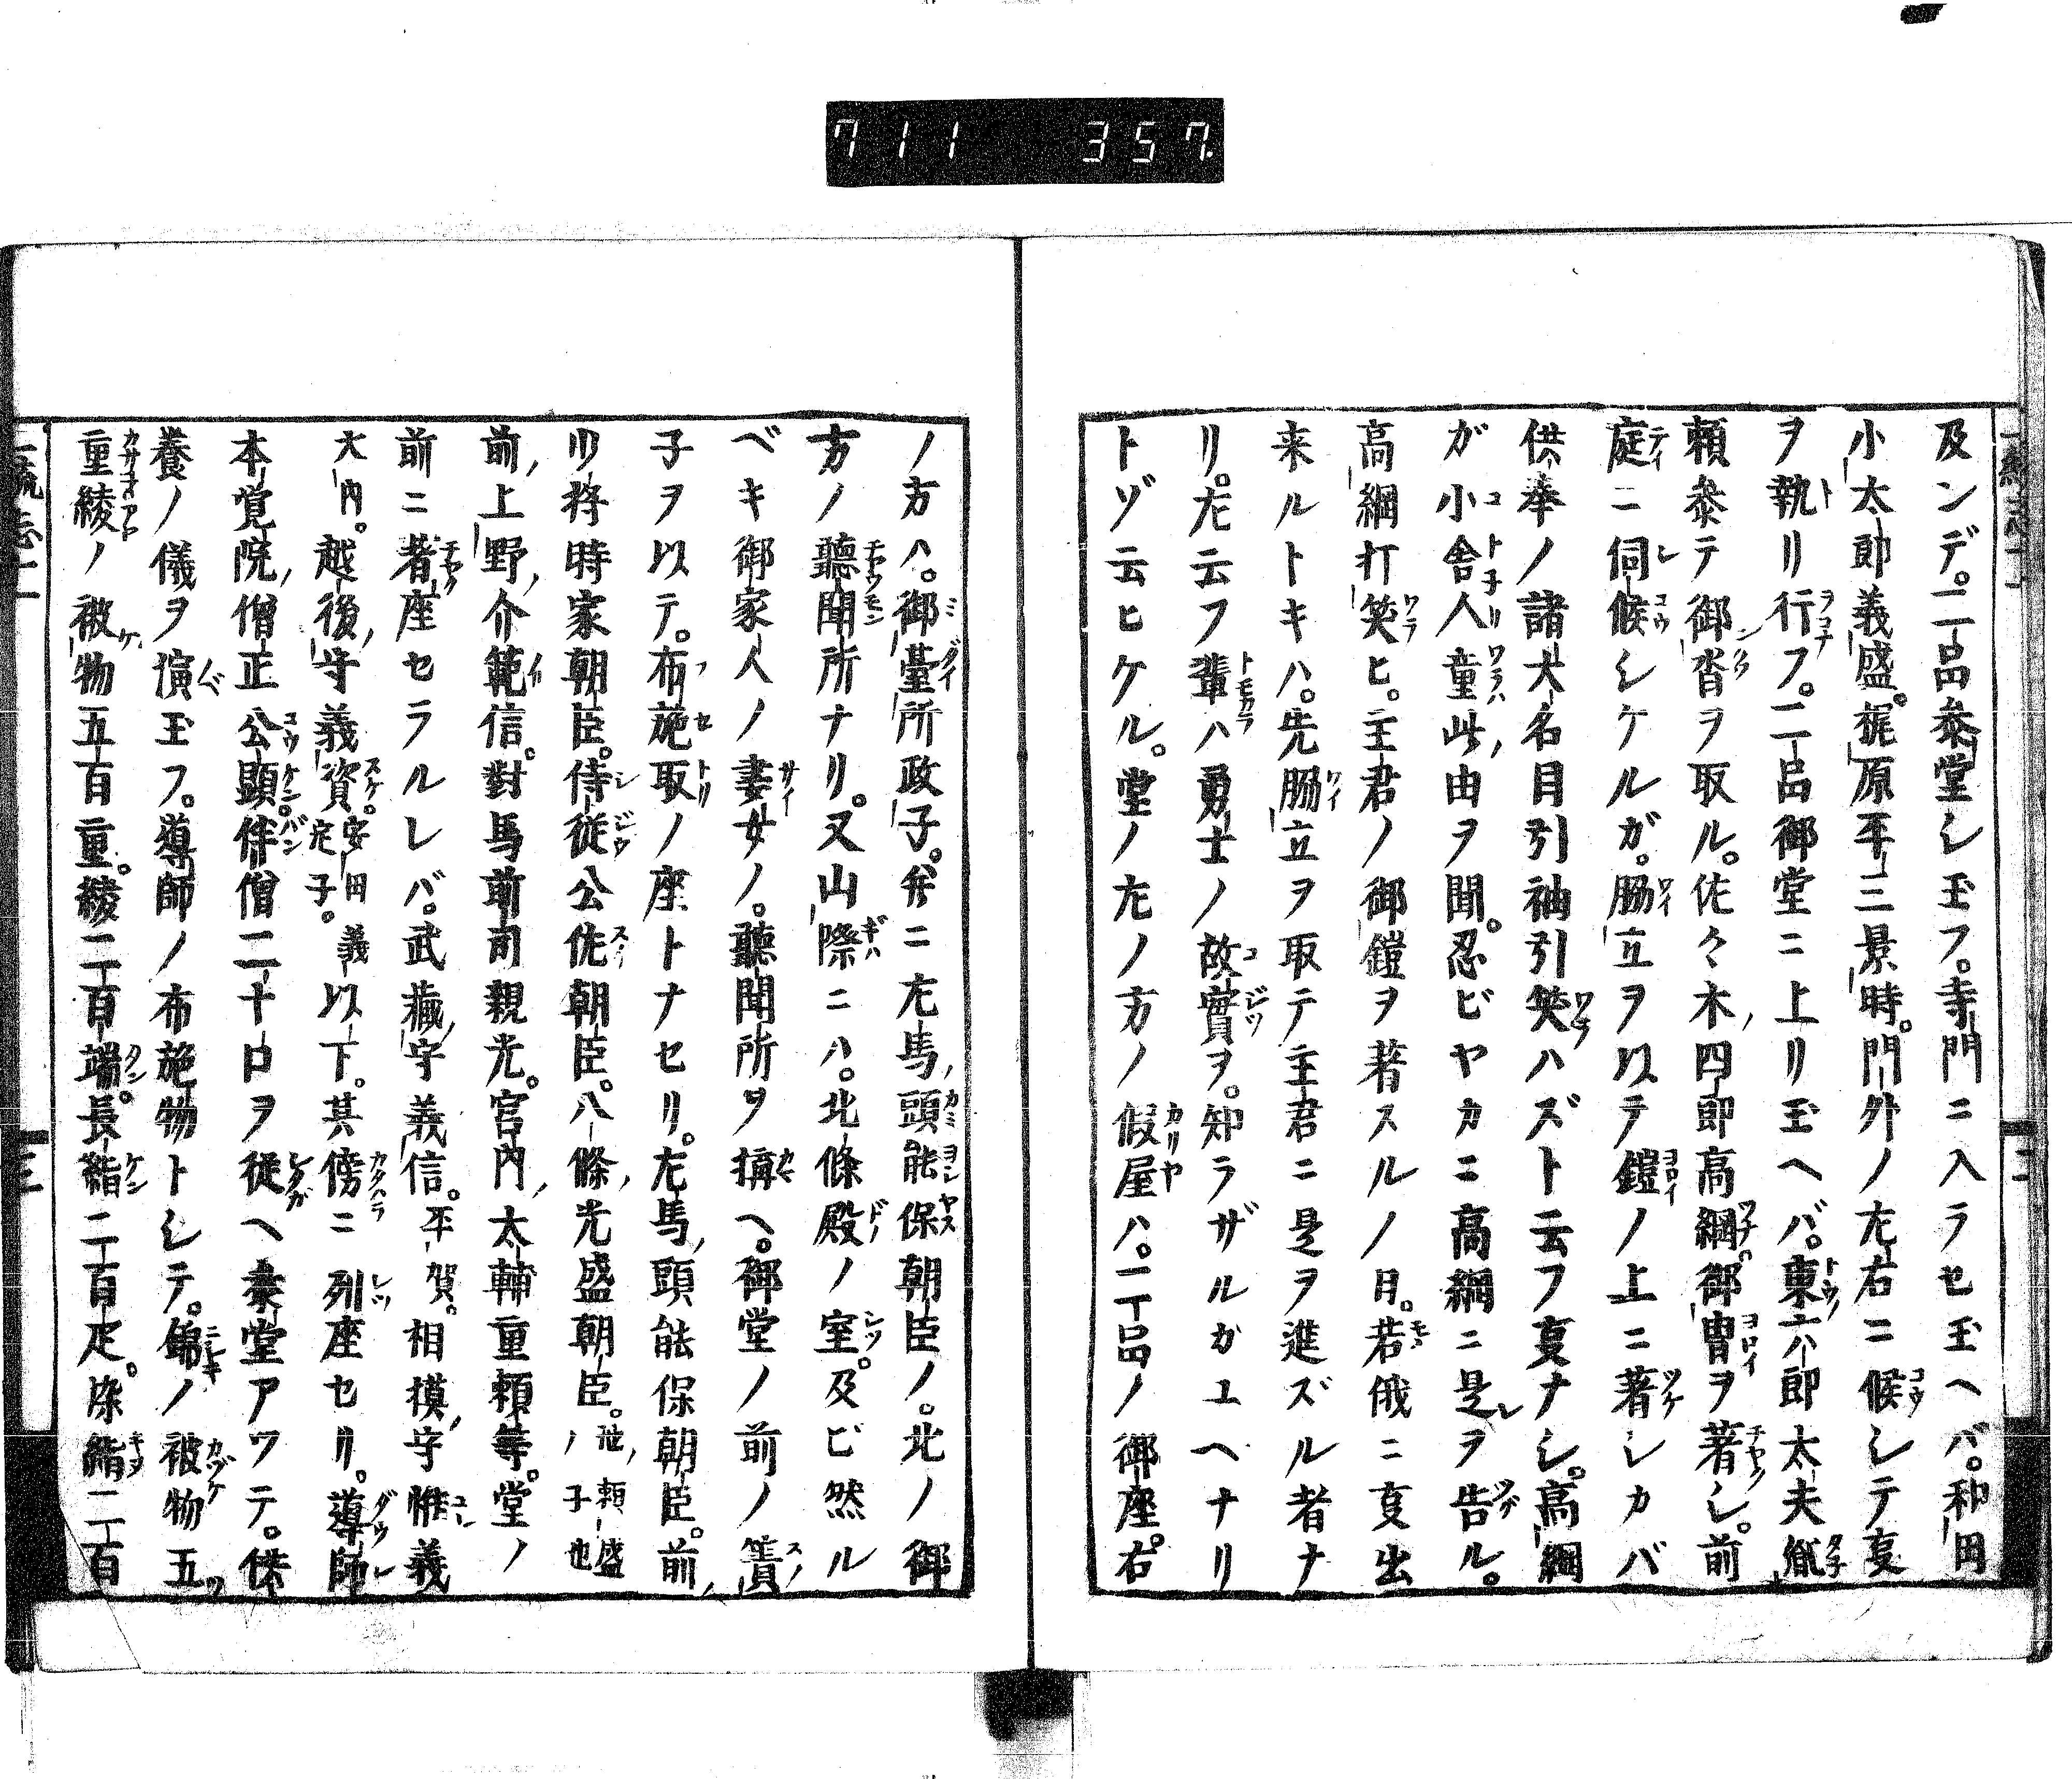 711 357.
及ンデ。二品参堂シ玉フ。寺門ニ入ラセ玉ヘバ。和田
小太郎義盛。梶原平三景時。門外ノ左右ニ候シテ叓
ヲ執リ行フ。二品御堂ニ上リ玉ヘバ。東六郎太夫胤
頼参テ御沓ヲ取ル。佐々木四郎高綱。御冑ヲ著シ。前
庭ニ伺候シケルガ。脇立ヲ以テ鎧ノ上ニ著シカバ
供奉ノ諸大名目引袖引笑ハズト云フ叓ナシ。高綱
ガ小舎人童此由ヲ聞。忍ビヤカニ高綱ニ是ヲ告ル。
高綱打笑ヒ。主君ノ御鎧ヲ著スルノ日。若俄ニ叓出
来ルトキハ。先脇立ヲ取テ主君ニ是ヲ進ズル者ナ
リ。左云フ輩ハ勇士ノ故實ヲ。知ラザルガユヘナリ
トゾ云ヒケル。堂ノ左ノ方ノ假屋ハ。二品ノ御座。右
ノ方ハ。御臺所政子。并ニ左馬頭能保朝臣ノ。北ノ御
方ノ聽聞所ナリ。又山際ニハ。北條殿ノ室。及ビ然ル
ベキ御家人ノ妻女ノ。聽聞所ヲ搆ヘ。御堂ノ前ノ簀
子ヲ以テ。布施取ノ座トナセリ。左馬頭能保朝臣。前
リ將時家朝臣。侍従公佐朝臣。八條光盛朝臣。池頼盛ノ子也
前上野介範信。對馬前司親光。宮内太輔重頼等。堂ノ
前ニ著座セラルレバ。武藏守義信。平賀。相摸守惟義
大内。越後守義資。安田義定子。以下。其傍ニ列座セリ。導師
本覚院僧正公顕。伴僧二十口ヲ従ヘ参堂アツテ。供
養ノ儀ヲ演玉フ。導師ノ布施物トシテ。錦ノ被物五ツ
重綾ノ被物五百重。綾二百端。長絹二百疋。染絹二百